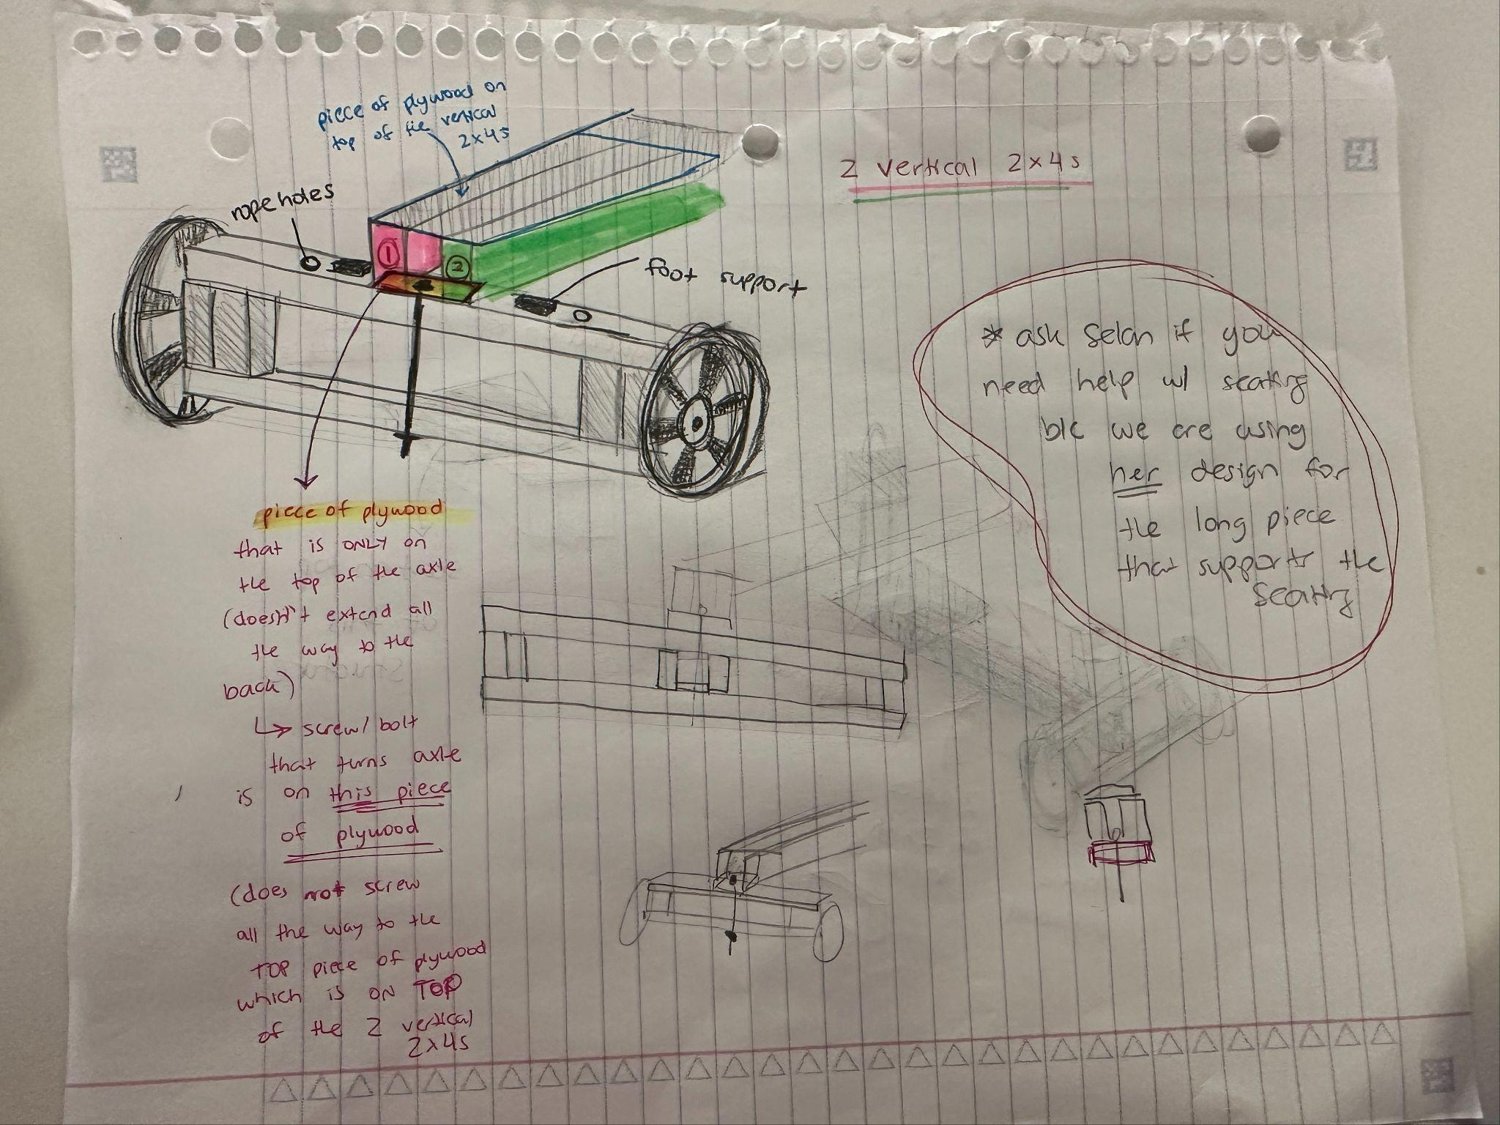 piece of plywood on
top of the vertical
2x4s
rope holes
2 vertical 2x4s
①
②
foot support
* ask Selan if you
need help w/ seating
b/c we are using
her design for
the long piece
that supports the
seating
piece of plywood
that is ONLY on
the top of the axle
(doesn't extend all
the way to the
back)
↳ screw/bolt
that turns axle
is on this piece
of plywood
(does not screw
all the way to the
TOP piece of plywood
which is ON TOP
of the 2 vertical
2x4s